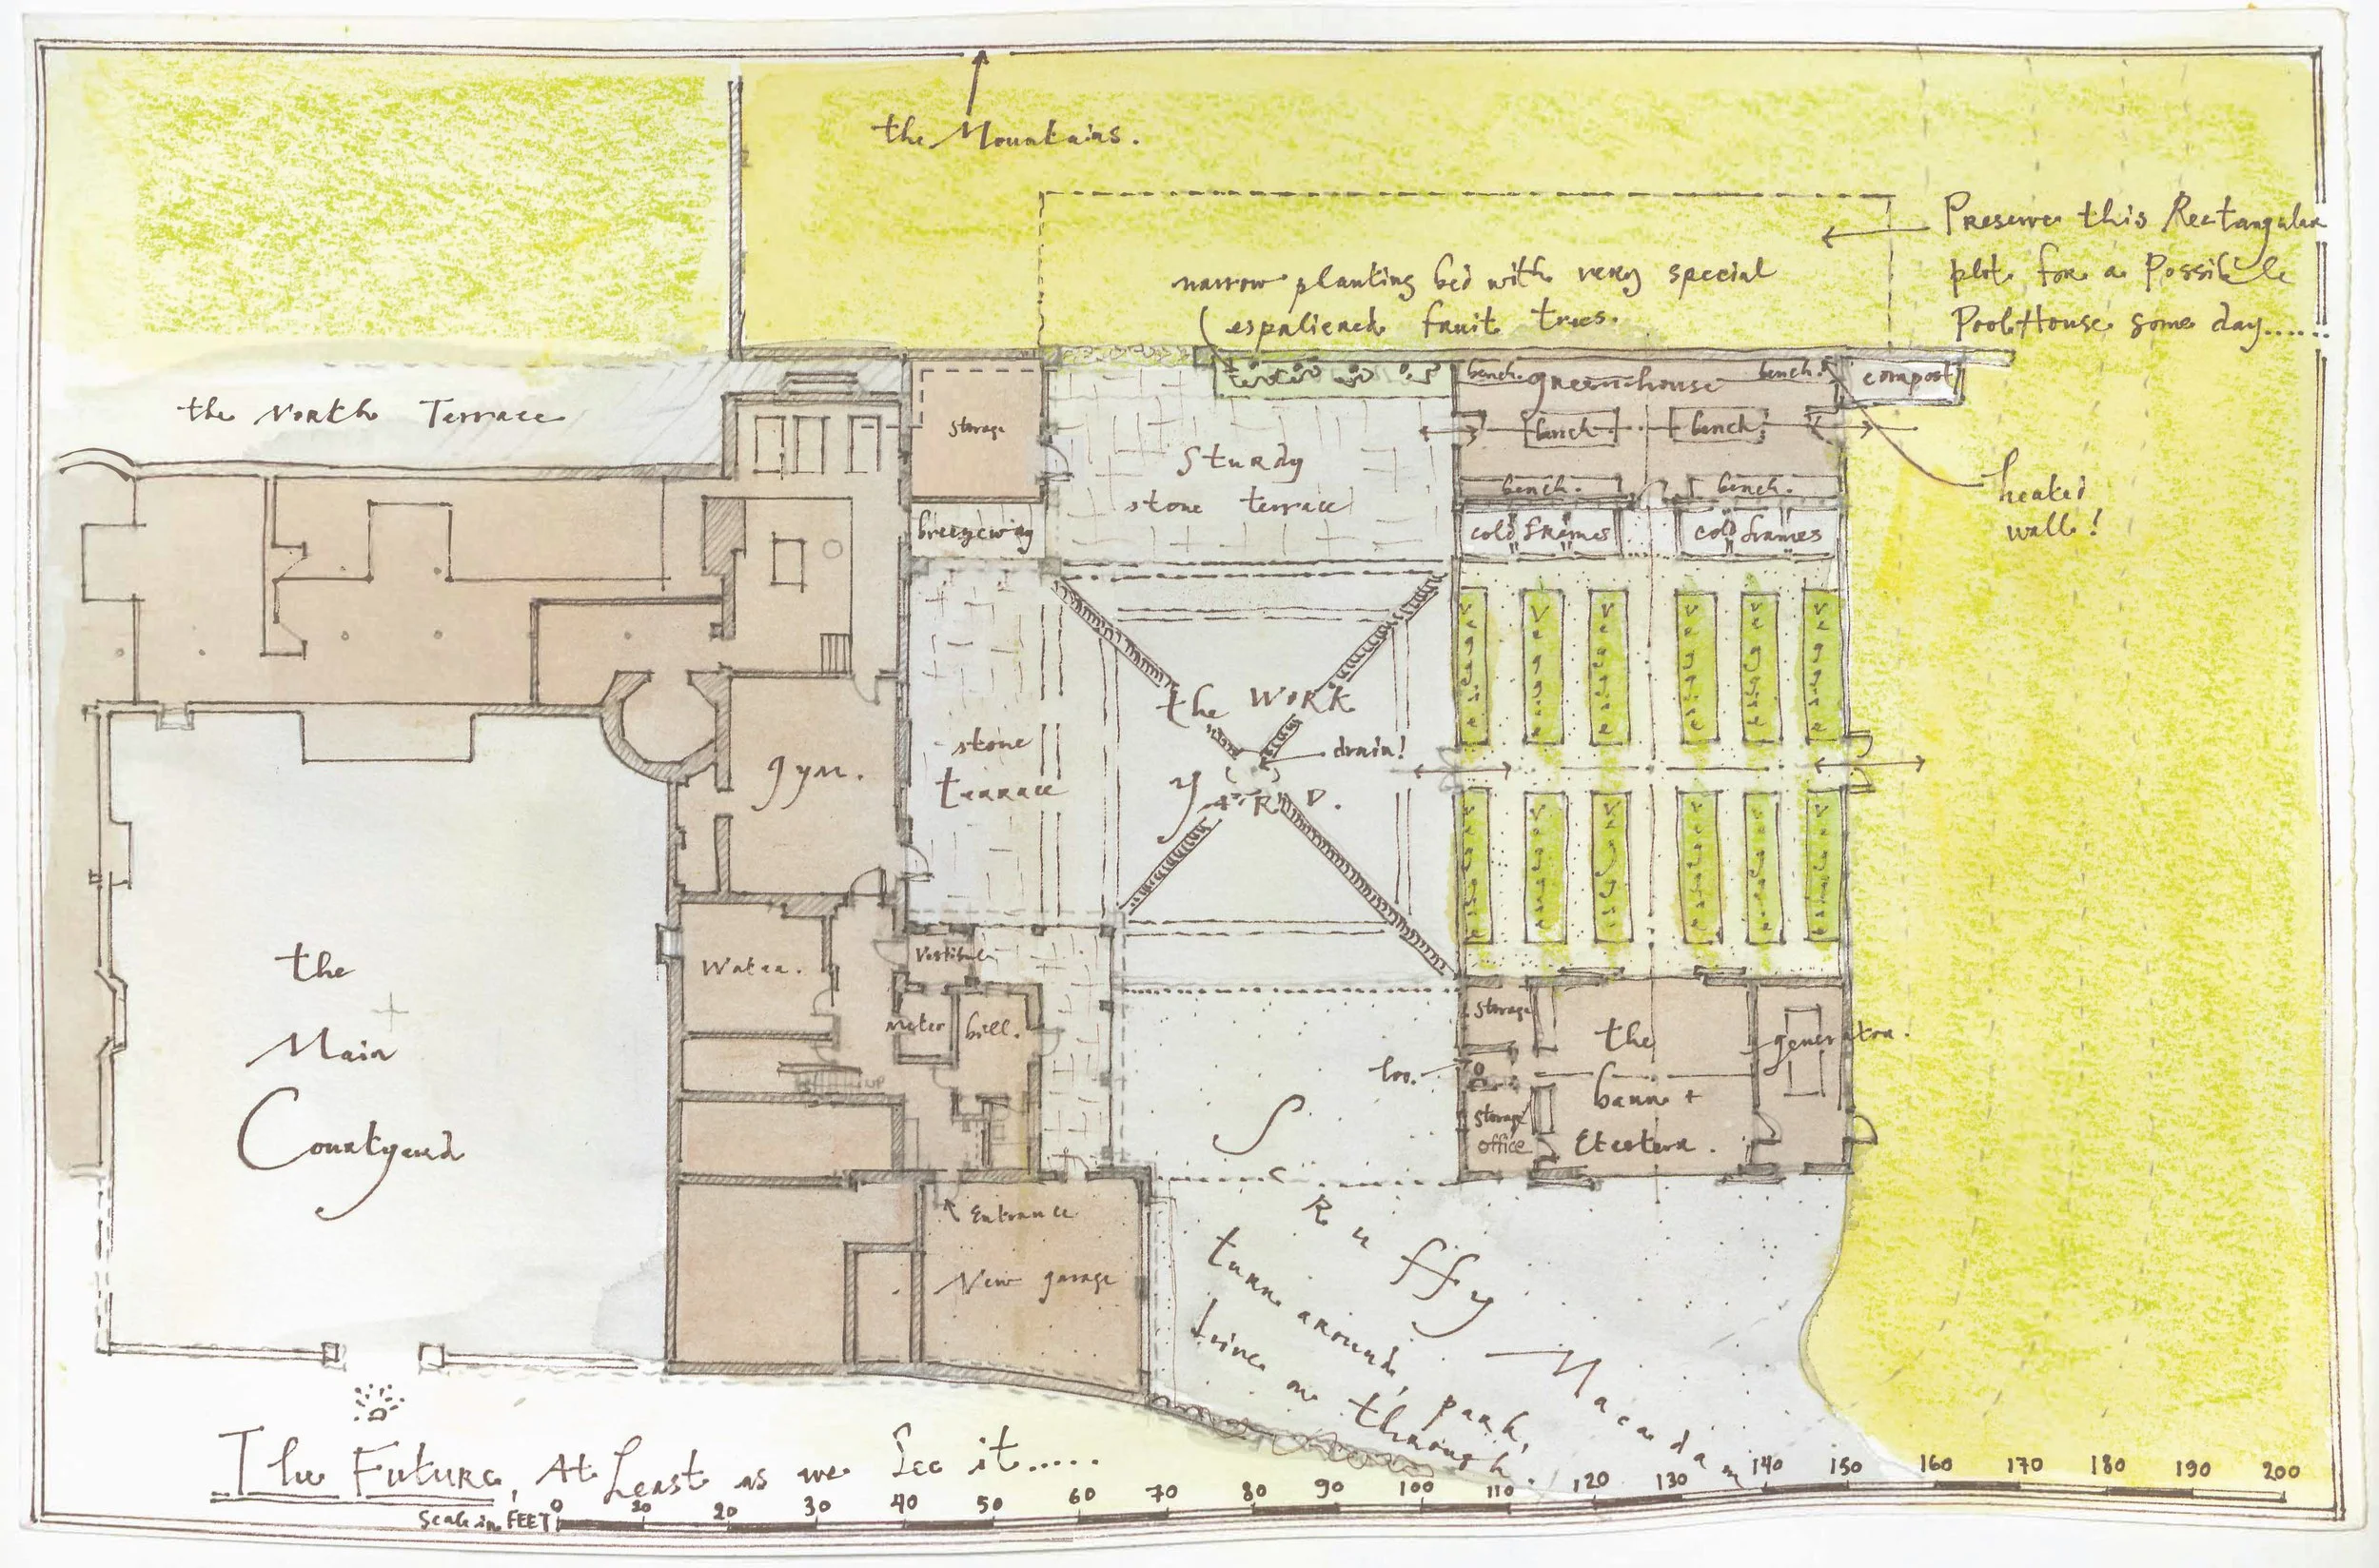 the Mountains.
Preserve this Rectangular
plot for a Possible
PoolHouse some day......
narrow planting bed with very special
espaliered fruit trees.
the North Terrace
storage
bench.
greenhouse
bench.
compost
bench
bench
bench.
bench.
Sturdy
stone terrace
heated
wall!
breezeway
cold frames
cold frames
the WORK
YARD.
drain!
stone
terrace
gym.
the
Main
Courtyard
Water.
Vestibule
Meter
bill.
UP
storage
loo.
storage
office
the
barn +
Etcetera.
generator.
Entrance
New garage
Ruffy Macadam
turn around, park,
drive on through.
The Future, At Least as we See it.....
Scale in FEET
0 10 20 30 40 50 60 70 80 90 100 110 120 130 140 150 160 170 180 190 200